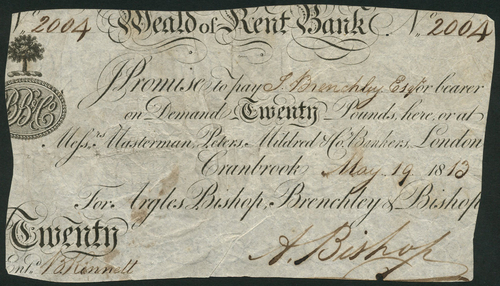 No 2004 Weald of Kent Bank No 2004
I Promise to pay J. Brenchley Esqr or bearer
on Demand Twenty Pounds, here, or at
Messrs. Masterman, Peters, Mildred & Co. Bankers, London
Cranbrook May 19 1813
For Argles, Bishop, Brenchley & Bishop
Twenty
Entd. Kennett A. Bishop